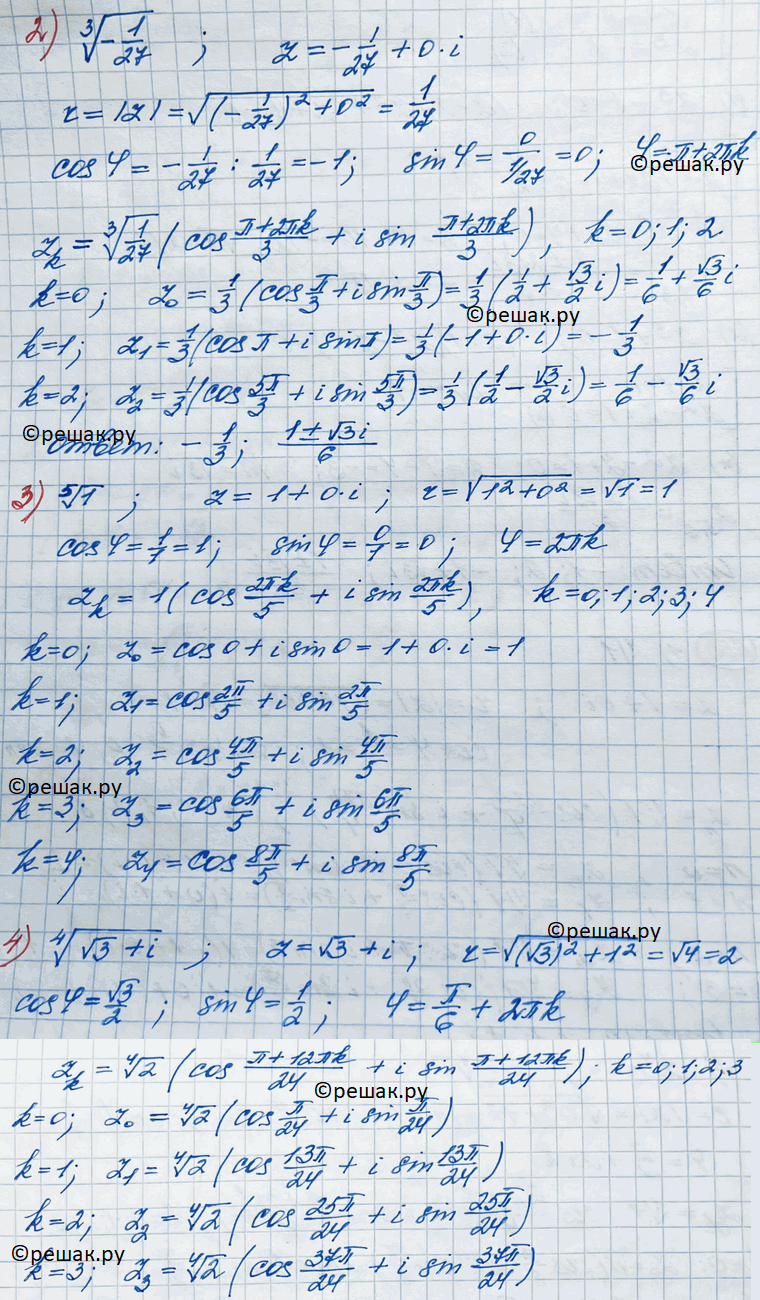 2) ∛(-1/27) ; z = -1/27 + 0·i
r = |z| = √((-1/27)² + 0²) = 1/27
cos φ = -1/27 : 1/27 = -1; sin φ = 0/(1/27) = 0; φ = π + 2πk
©решак.ру
z_k = ∛(1/27) (cos (π+2πk)/3 + i sin (π+2πk)/3), k = 0; 1; 2
k=0; z₀ = 1/3 (cos π/3 + i sin π/3) = 1/3 (1/2 + √3/2 i) = 1/6 + √3/6 i
©решак.ру
k=1; z₁ = 1/3 (cos π + i sin π) = 1/3 (-1 + 0·i) = -1/3
k=2; z₂ = 1/3 (cos 5π/3 + i sin 5π/3) = 1/3 (1/2 - √3/2 i) = 1/6 - √3/6 i
©решак.ру
ответ: -1/3; (1±√3i)/6
3) ⁵√1 ; z = 1 + 0·i ; r = √(1² + 0²) = √1 = 1
cos φ = 1/1 = 1; sin φ = 0/1 = 0; φ = 2πk
z_k = 1 (cos 2πk/5 + i sin 2πk/5), k = 0; 1; 2; 3; 4
k=0; z₀ = cos 0 + i sin 0 = 1 + 0·i = 1
k=1; z₁ = cos 2π/5 + i sin 2π/5
k=2; z₂ = cos 4π/5 + i sin 4π/5
©решак.ру
k=3; z₃ = cos 6π/5 + i sin 6π/5
k=4; z₄ = cos 8π/5 + i sin 8π/5
©решак.ру
4) ⁴√(√3 + i) ; z = √3 + i ; r = √((√3)² + 1²) = √4 = 2
cos φ = √3/2 ; sin φ = 1/2 ; φ = π/6 + 2πk
z_k = ⁴√2 (cos (π+12πk)/24 + i sin (π+12πk)/24); k = 0; 1; 2; 3
©решак.ру
k=0; z₀ = ⁴√2 (cos π/24 + i sin π/24)
k=1; z₁ = ⁴√2 (cos 13π/24 + i sin 13π/24)
k=2; z₂ = ⁴√2 (cos 25π/24 + i sin 25π/24)
©решак.ру
k=3; z₃ = ⁴√2 (cos 37π/24 + i sin 37π/24)